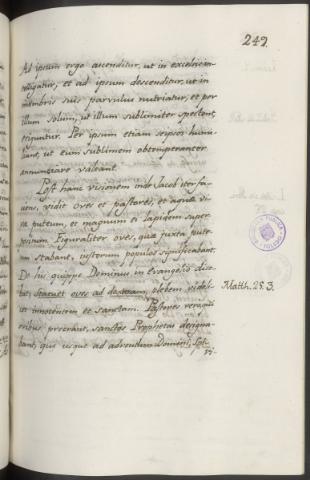 249.
Ad ipsum ergo ascenditur, ut in excelsis in-
telligatur, et ad ipsum descenditur, ut in
membris suis parvulus nutriatur, et per
illum solum, ut illum sublimiter spectent,
eriguntur. Per ipsum etiam seipsos humi-
liant, ut eum sublimem obtemperanter
annuntiare valeant.
Post hanc visionem inde Jacob iter fa-
ciens, vidit oves et pastores, et aquæ vi-
væ puteum, et magnum ei lapidem super
positum. Figuraliter oves, quæ juxta pute-
um stabant, justorum populos significabant.
De his quippe Dominus in evangelio dice-
bat, Statuet oves ad dexteram, plebem videli-
cet innocentem et sanctam. Pastores vero, qui
ovibus præerant, sanctos Prophetas designa-
bant, qui usque ad adventum Domini,
Matth. 25. 3.